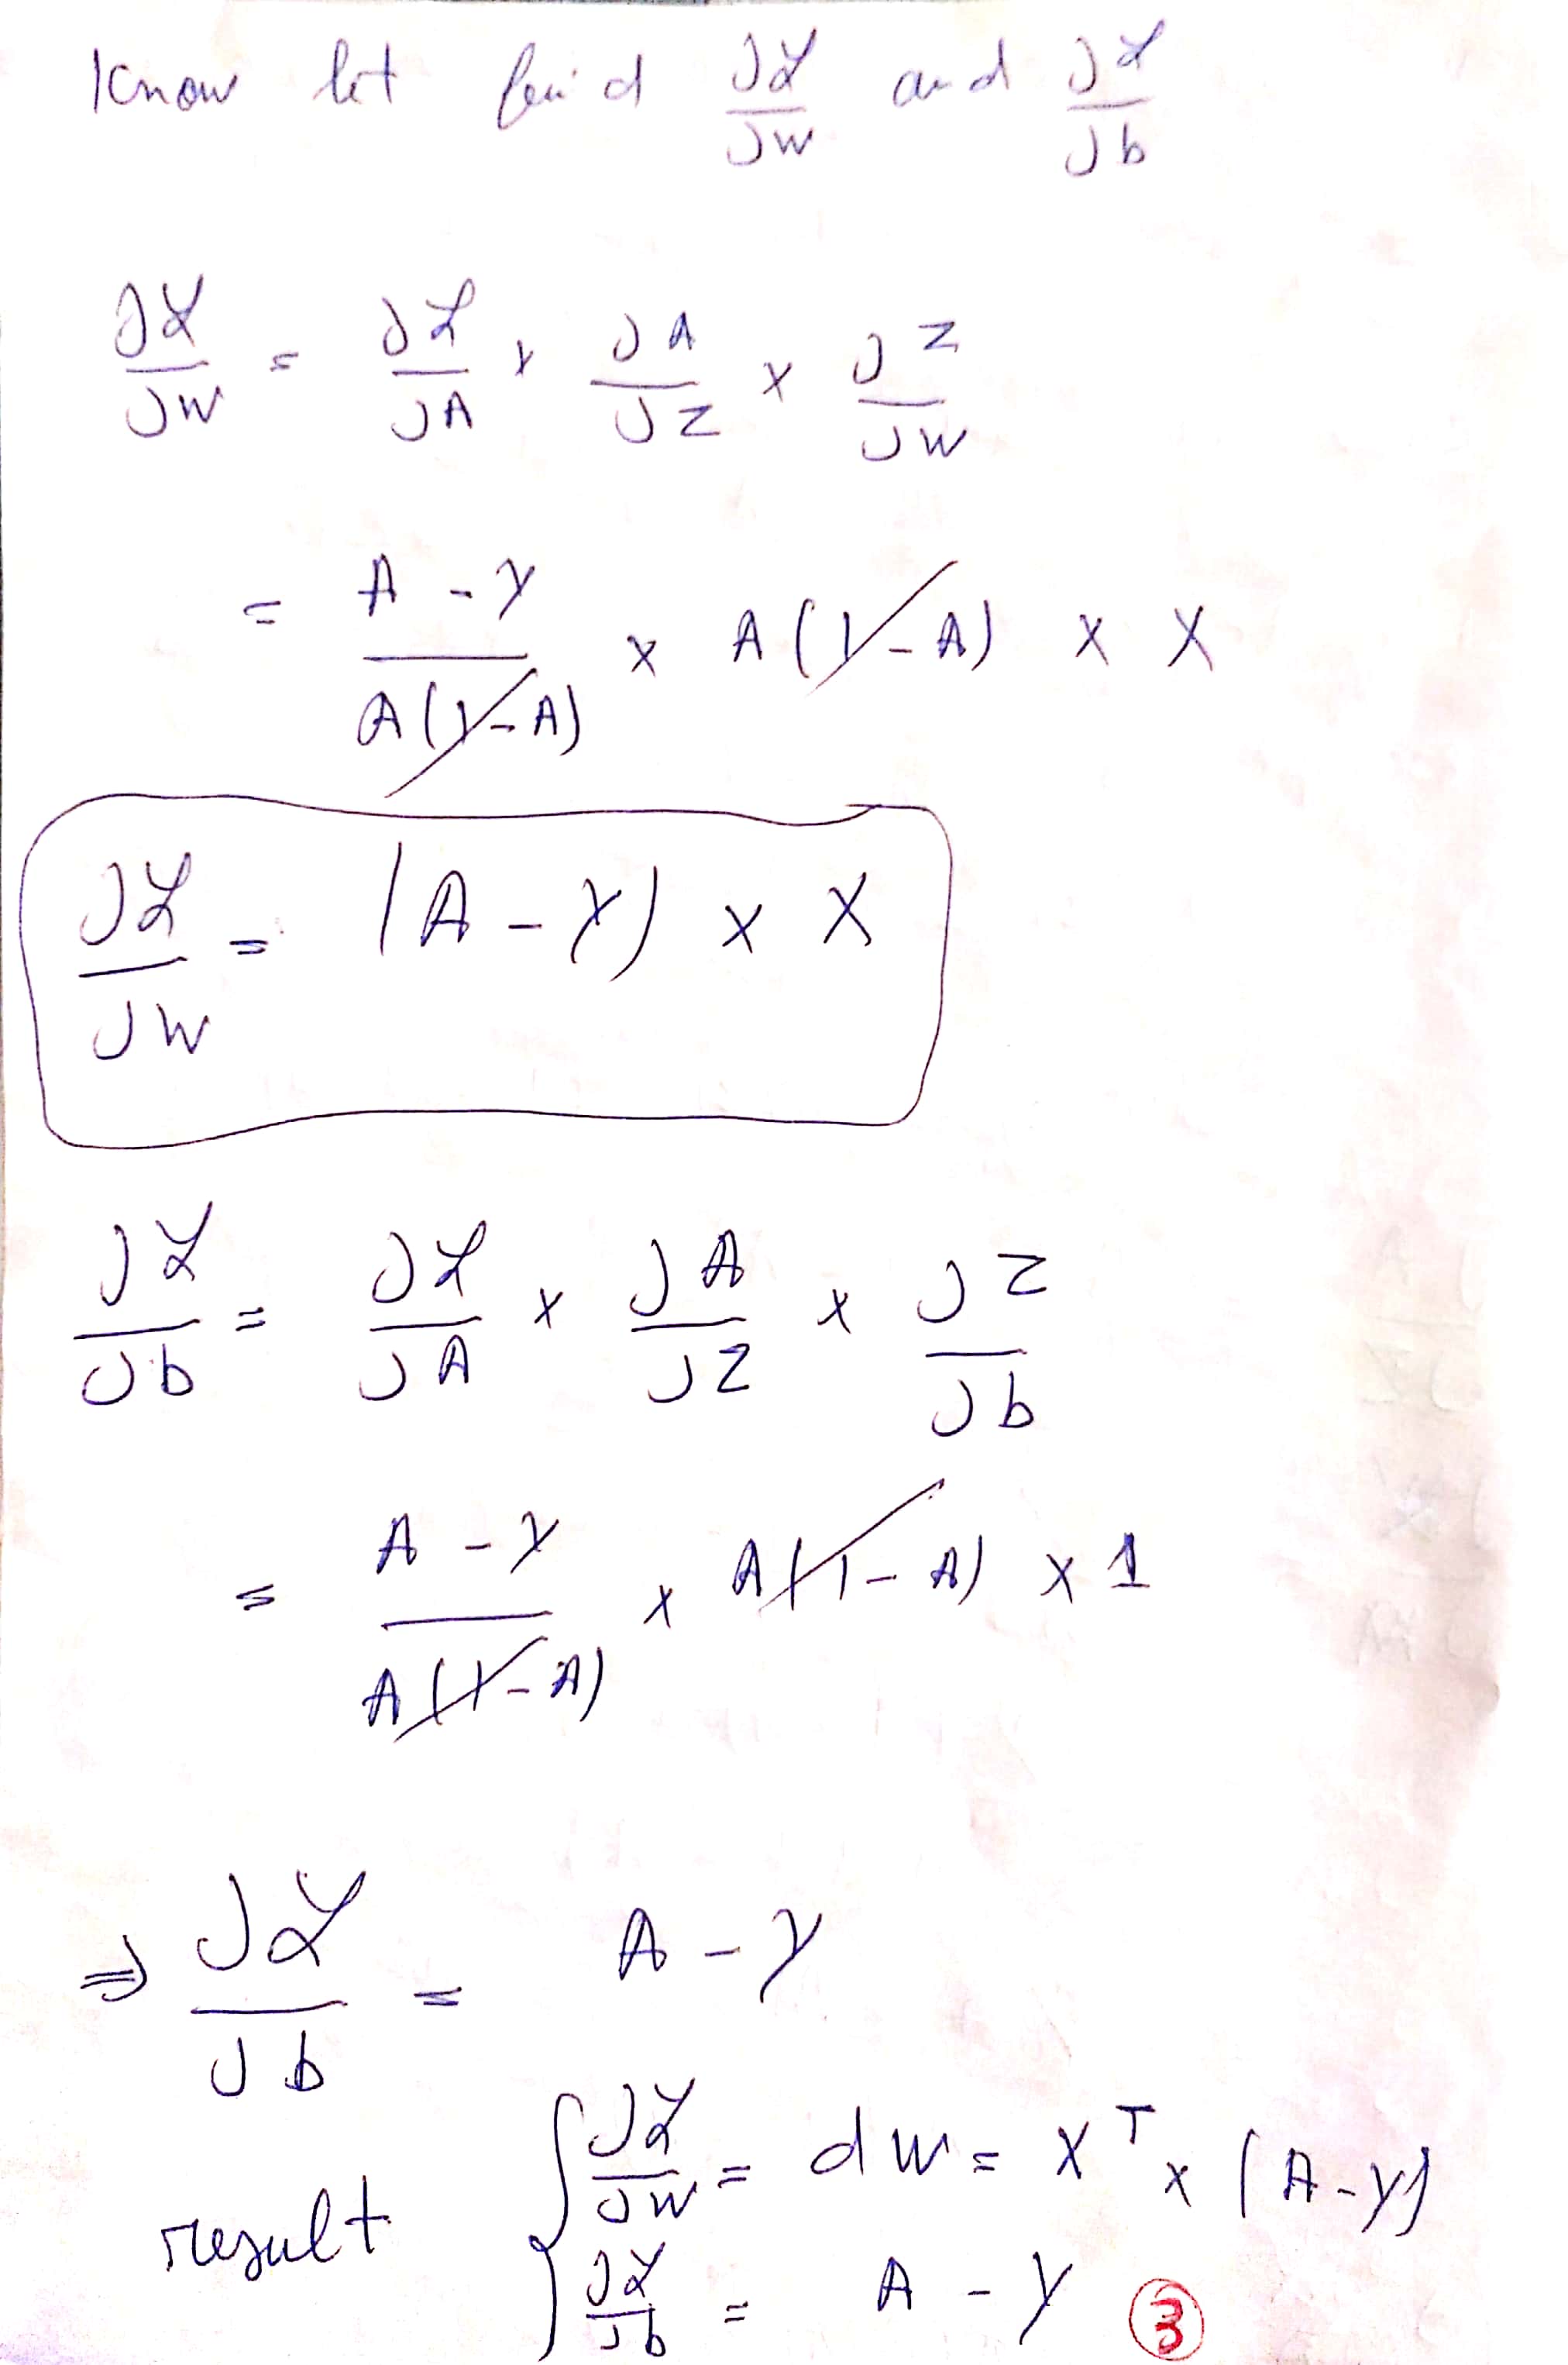 Know let find ∂ℒ/∂w and ∂ℒ/∂b
∂ℒ/∂w = ∂ℒ/∂A × ∂A/∂Z × ∂Z/∂w
= A - Y / A(1-A) × A(1-A) × X
∂ℒ/∂w = (A - Y) × X
∂ℒ/∂b = ∂ℒ/∂A × ∂A/∂Z × ∂Z/∂b
= A - Y / A(1-A) × A(1-A) × 1
⇒ ∂ℒ/∂b = A - Y
result { ∂ℒ/∂w = dw = X^T × (A-Y)
∂ℒ/∂b = A - Y
3